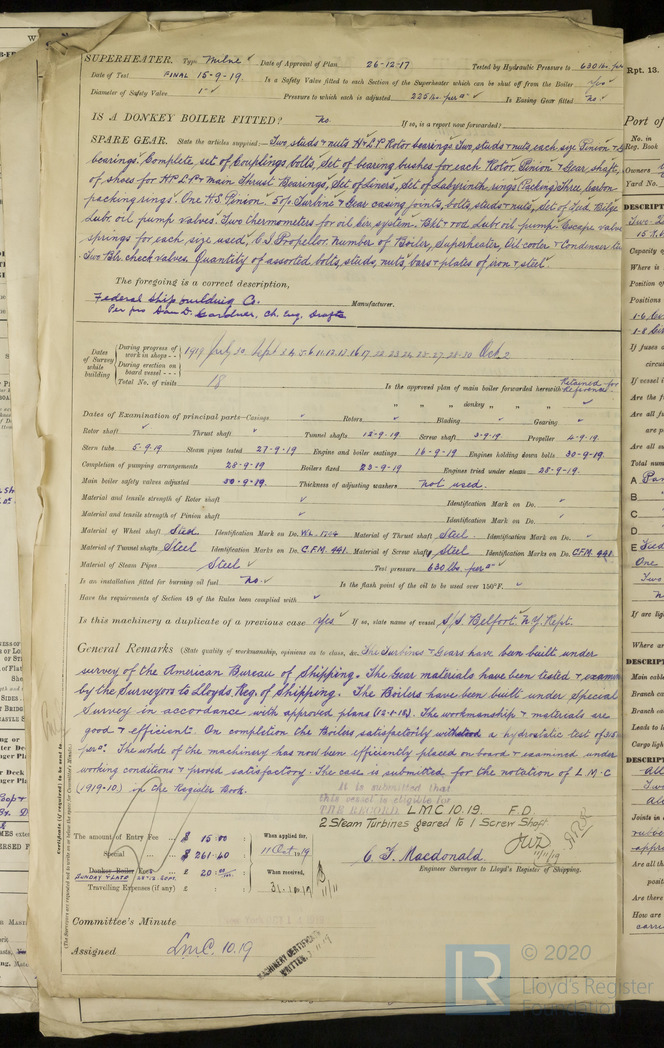 SUPERHEATER. Type Milne Date of Approval of Plan 26-12-17 Tested by Hydraulic Pressure to 630 lbs. per
Date of Test FINAL 15-9-19. Is a Safety Valve fitted to each Section of the Superheater which can be shut off from the Boiler yes
Diameter of Safety Valve 1" Pressure to which each is adjusted 225 lbs. per Is Easing Gear fitted No.
IS A DONKEY BOILER FITTED? No If so, is a report now forwarded?
SPARE GEAR. State the articles supplied:— Two, studs & nuts H & L.P. Rotor bearings. Two, studs & nuts, each size Pinion &
bearings. Complete set of Couplings, bolts, Set of bearing bushes for each Rotor, Pinion & Gear shaft,
of shoes for HP LP & Main Thrust Bearings, Set of liners, Set of Labyrinth rings (Packing) Three, carbon
packing rings. One H.S. Pinion. 50% Turbine & Gear casing joints, bolts, studs & nuts, Set of Feed Bilge
Lubr. oil pump valves. Two thermometers for oil Cir. system. Bkt & rod Lubr oil pump. Escape valve
springs for each size used, C.I Propellor. Number of Boiler, Superheater, Oil cooler & Condenser
Two Blr. check valves. Quantity of assorted bolts, studs, nuts, bars & plates of iron & steel.
The foregoing is a correct description,
Federal Shipbuilding Co. Manufacturer.
Per pro Gardner, Ch. Eng. Drafts
Dates of Survey while building
During progress of work in shops -- 1919 July 30. Sept 3 4 5 6 11 12 13 16 17 22 23 24 26 27 28-30 Oct 2
During erection on board vessel ---
Total No. of visits 18
Is the approved plan of main boiler forwarded herewith Retained for Reference.
" " " donkey " " "
Dates of Examination of principal parts—Casings Rotors Blading Gearing
Rotor shaft Thrust shaft Tunnel shafts 12-9-19. Screw shaft 3-9-19 Propeller 4-9-19.
Stern tube 5-9-19 Steam pipes tested 27-9-19 Engine and boiler seatings 16-9-19 Engines holding down bolts 30-9-19.
Completion of pumping arrangements 28-9-19 Boilers fixed 23-9-19 Engines tried under steam 28-9-19.
Main boiler safety valves adjusted 30-9-19. Thickness of adjusting washers Not used.
Material and tensile strength of Rotor shaft Identification Mark on Do.
Material and tensile strength of Pinion shaft Identification Mark on Do.
Material of Wheel shaft Steel Identification Mark on Do. Material of Thrust shaft Steel. Identification Mark on Do.
Material of Tunnel shafts Steel Identification Marks on Do. C.F.M. 441. Material of Screw shafts Steel Identification Marks on Do. CFM 441.
Material of Steam Pipes Steel Test pressure 630 lbs. per
Is an installation fitted for burning oil fuel No. Is the flash point of the oil to be used over 150°F.
Have the requirements of Section 49 of the Rules been complied with
Is this machinery a duplicate of a previous case Yes If so, state name of vessel S/S. Belfort. N.Y. Rept.
General Remarks (State quality of workmanship, opinions as to class, &c. The Turbines & Gears have been built under
survey of the American Bureau of Shipping. The Gear materials have been tested &
by the Surveyors to Lloyds Reg. of Shipping. The Boilers have been built under Special
Survey in accordance with approved plans (12-1-18). The workmanship & materials are
good & efficient. On completion the Boilers satisfactorily withstood a hydrostatic test of
per The whole of the machinery has now been efficiently placed on board & examined under
working conditions & proved satisfactory. The case is submitted for the notation of L M C
(1919-10) in the Register Book.
It is submitted that
this vessel is eligible for
THE RECORD. L M C 10.19 F.D.
2 Steam Turbines geared to 1 Screw Shaft
The amount of Entry Fee .. $ 15.00 : When applied for,
Special .. $ 261.60 : 11 Oct. 19
Donkey Boiler Fee .. £ 20.00 : When received,
SUNDAY & LATE 28-12 SEPT.
Travelling Expenses (if any) £ : 31.10.19
C. F. Macdonald.
Engineer Surveyor to Lloyd's Register of Shipping.
Committee's Minute
Assigned LMC. 10.19
MACHINERY CERTIFICATE
WRITTEN
Rpt. 13.
Port of
No. in
Reg. Book
Owners
Yard No.
DESCRIPT
Capacity of
Where is
Position of
Positions
If fuses
If vessel
Are the
Are all
Total num
A
B
C
D
E
DESCRIP
Main cable
Branch
Branch
Leads to
Cargo light
DESCRIPT
Joints in
Are all th
Are there
How are
© 2020
LR
Lloyd's Register
Foundation